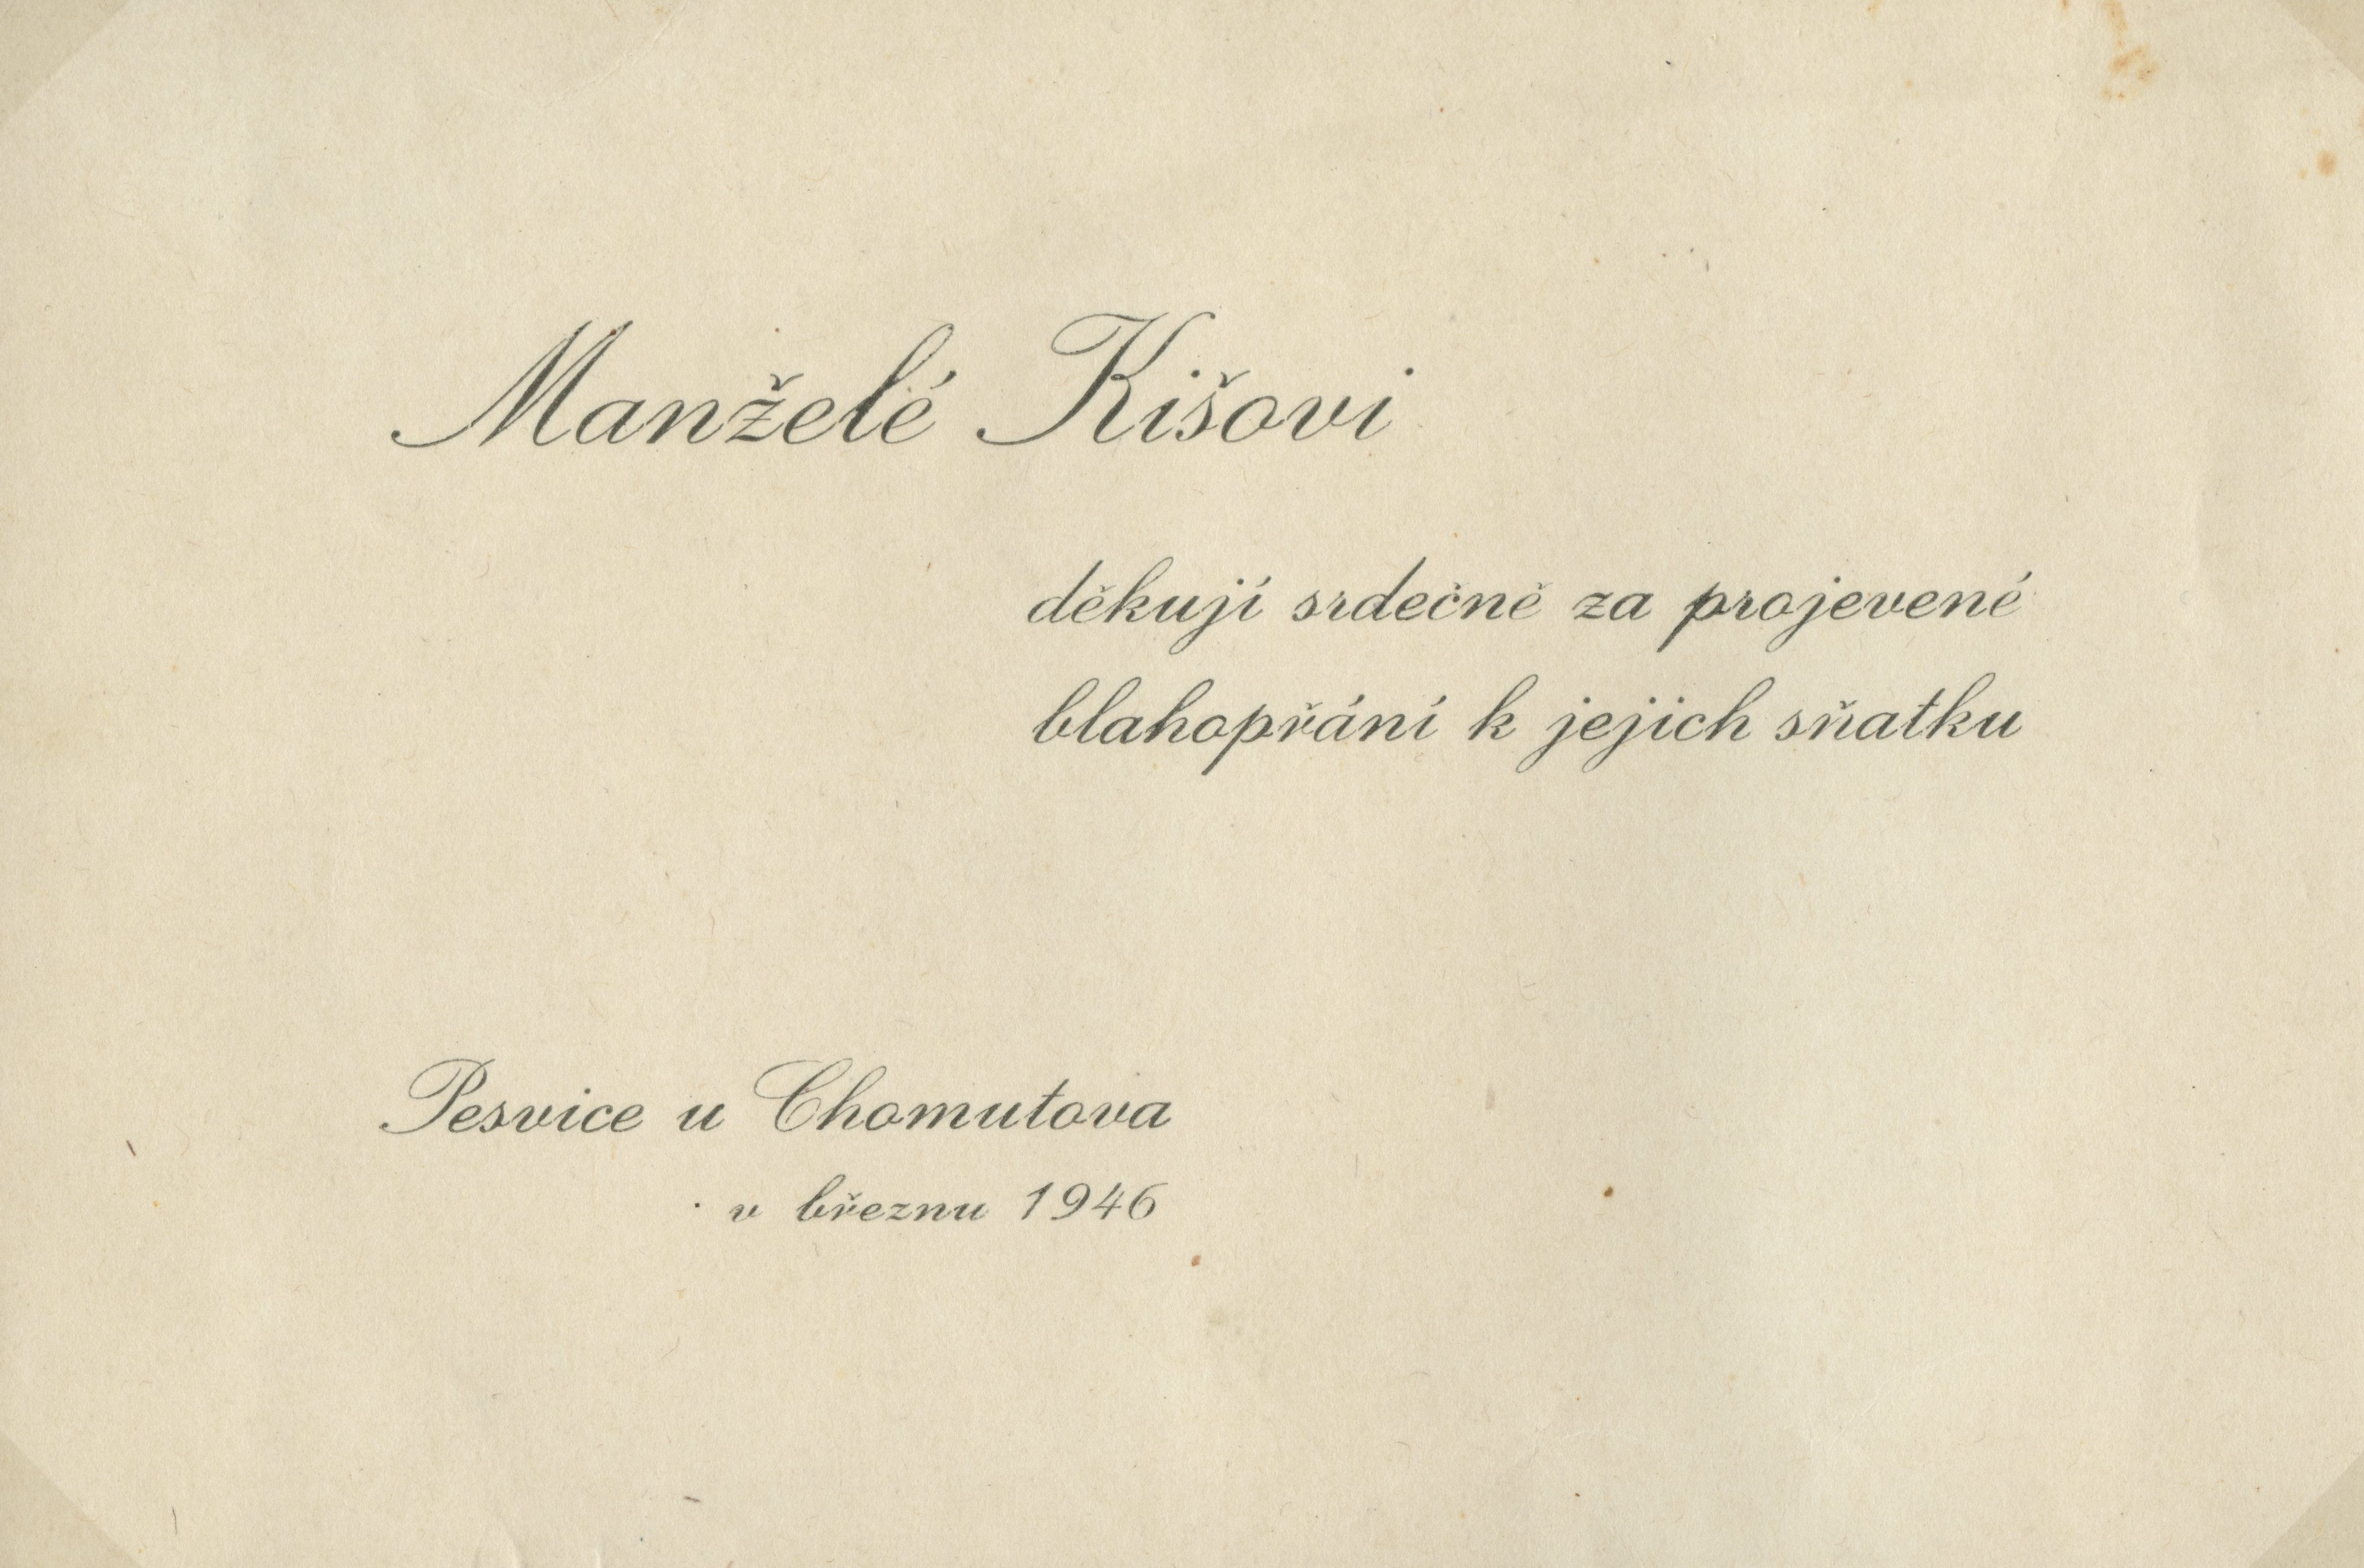 Manželé Kišovi
děkují srdečně za projevené
blahopřání k jejich sňatku
Pesvice u Chomutova
v březnu 1946